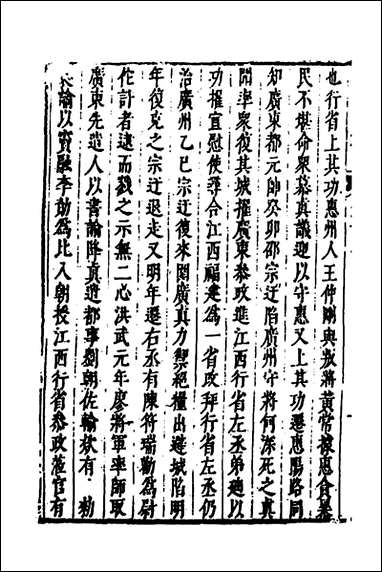 也行省上其功惠州人王仲剛與叛將黃常據惠含暴
民不堪命眾慕真議迎以守惠又上其功遷惠陽路同
知廣東都元帥癸卯邵宗迂陷廣州守將何深死之真
聞率眾復其城擢廣東叅政進江西行省左丞弟廸以
功擢宣慰使尋合江西福建為一省政拜行省左丞仍
治廣州乙巳宗迂復來圍廣真力禦絕糧出避城陷明
年復克之宗迂退走又明年遷右丞有陳符瑞勸為尉
佗計者遽而戮之示無二心洪武元年廖將軍率師取
廣東先遣人以書諭降真遣都事劉朝佐輸欵有 勅
諭以竇融李勣為比入朝授江西行省叅政蒞官有